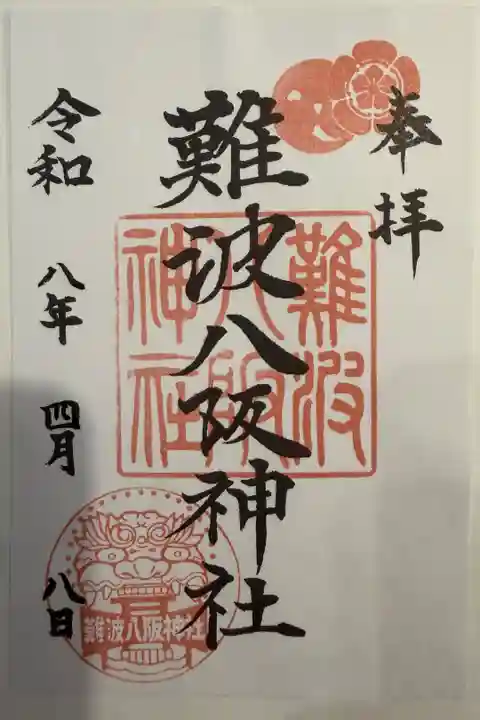 奉拝
難波八阪神社
難波八阪神社
令和 八年 四月 八日
難波八阪神社